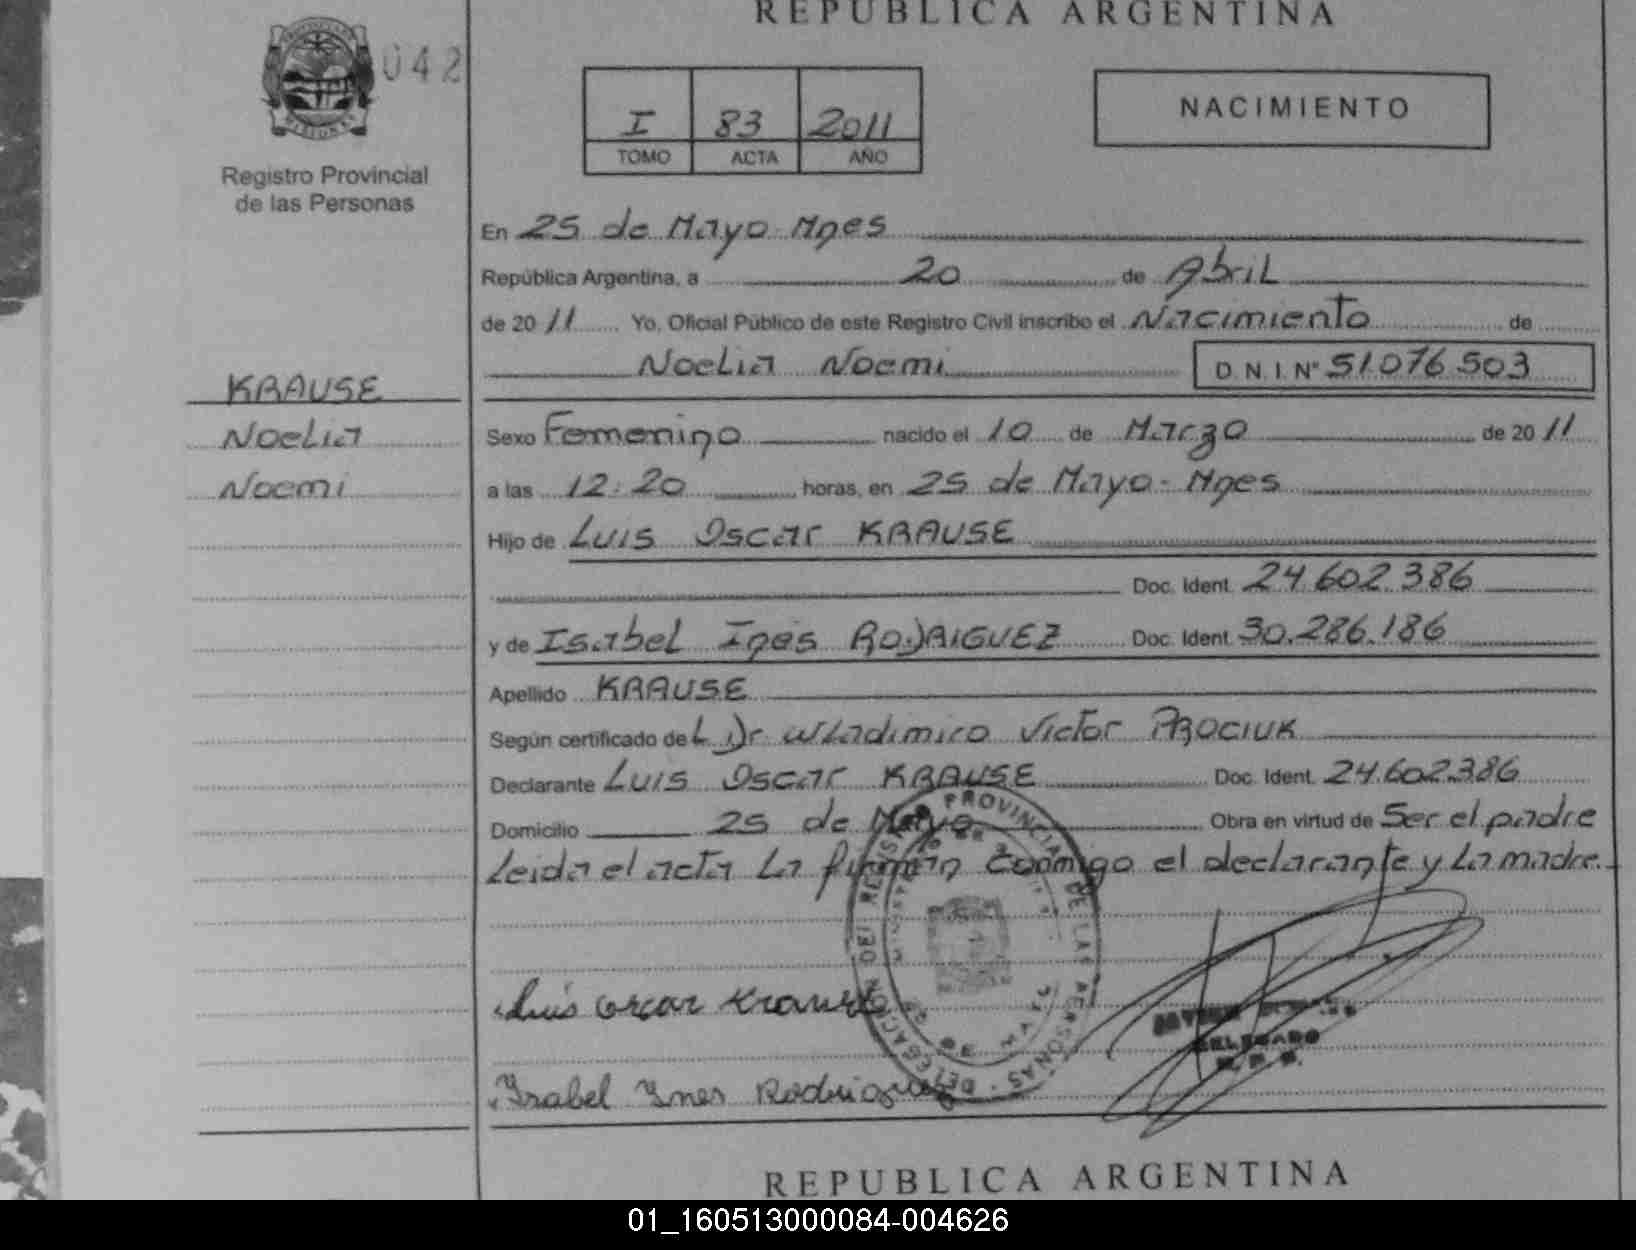 REPUBLICA ARGENTINA
042
PROVINCIA
MISIONES
Registro Provincial
de las Personas
I 83 2011
TOMO ACTA AÑO
NACIMIENTO
En 25 de Mayo-Mnes
República Argentina, a 20 de Abril
de 2011 Yo, Oficial Público de este Registro Civil inscribo el Nacimiento de
Noelia Noemi D.N.I.Nº 51.076.503
KRAUSE
Noelia
Noemi
Sexo Femenino nacido el 10 de Marzo de 2011
a las 12:20 horas, en 25 de Mayo-Mnes
Hijo de Luis Oscar KRAUSE
Doc. Ident. 24.602.386
y de Isabel Ines RODRIGUEZ Doc. Ident. 30.286.186
Apellido KRAUSE
Según certificado del Dr Wladimiro Victor PROCIUK
Declarante Luis Oscar KRAUSE Doc. Ident. 24.602.386
Domicilio 25 de Mayo Obra en virtud de Ser el padre
Leida el acta La firman conmigo el declarante y La madre.
DELEGACION DEL REGISTRO PROVINCIAL DE LAS PERSONAS
Luis Oscar Krause
DELEGADO
Isabel Ynes Rodriguez
REPUBLICA ARGENTINA
01_160513000084-004626